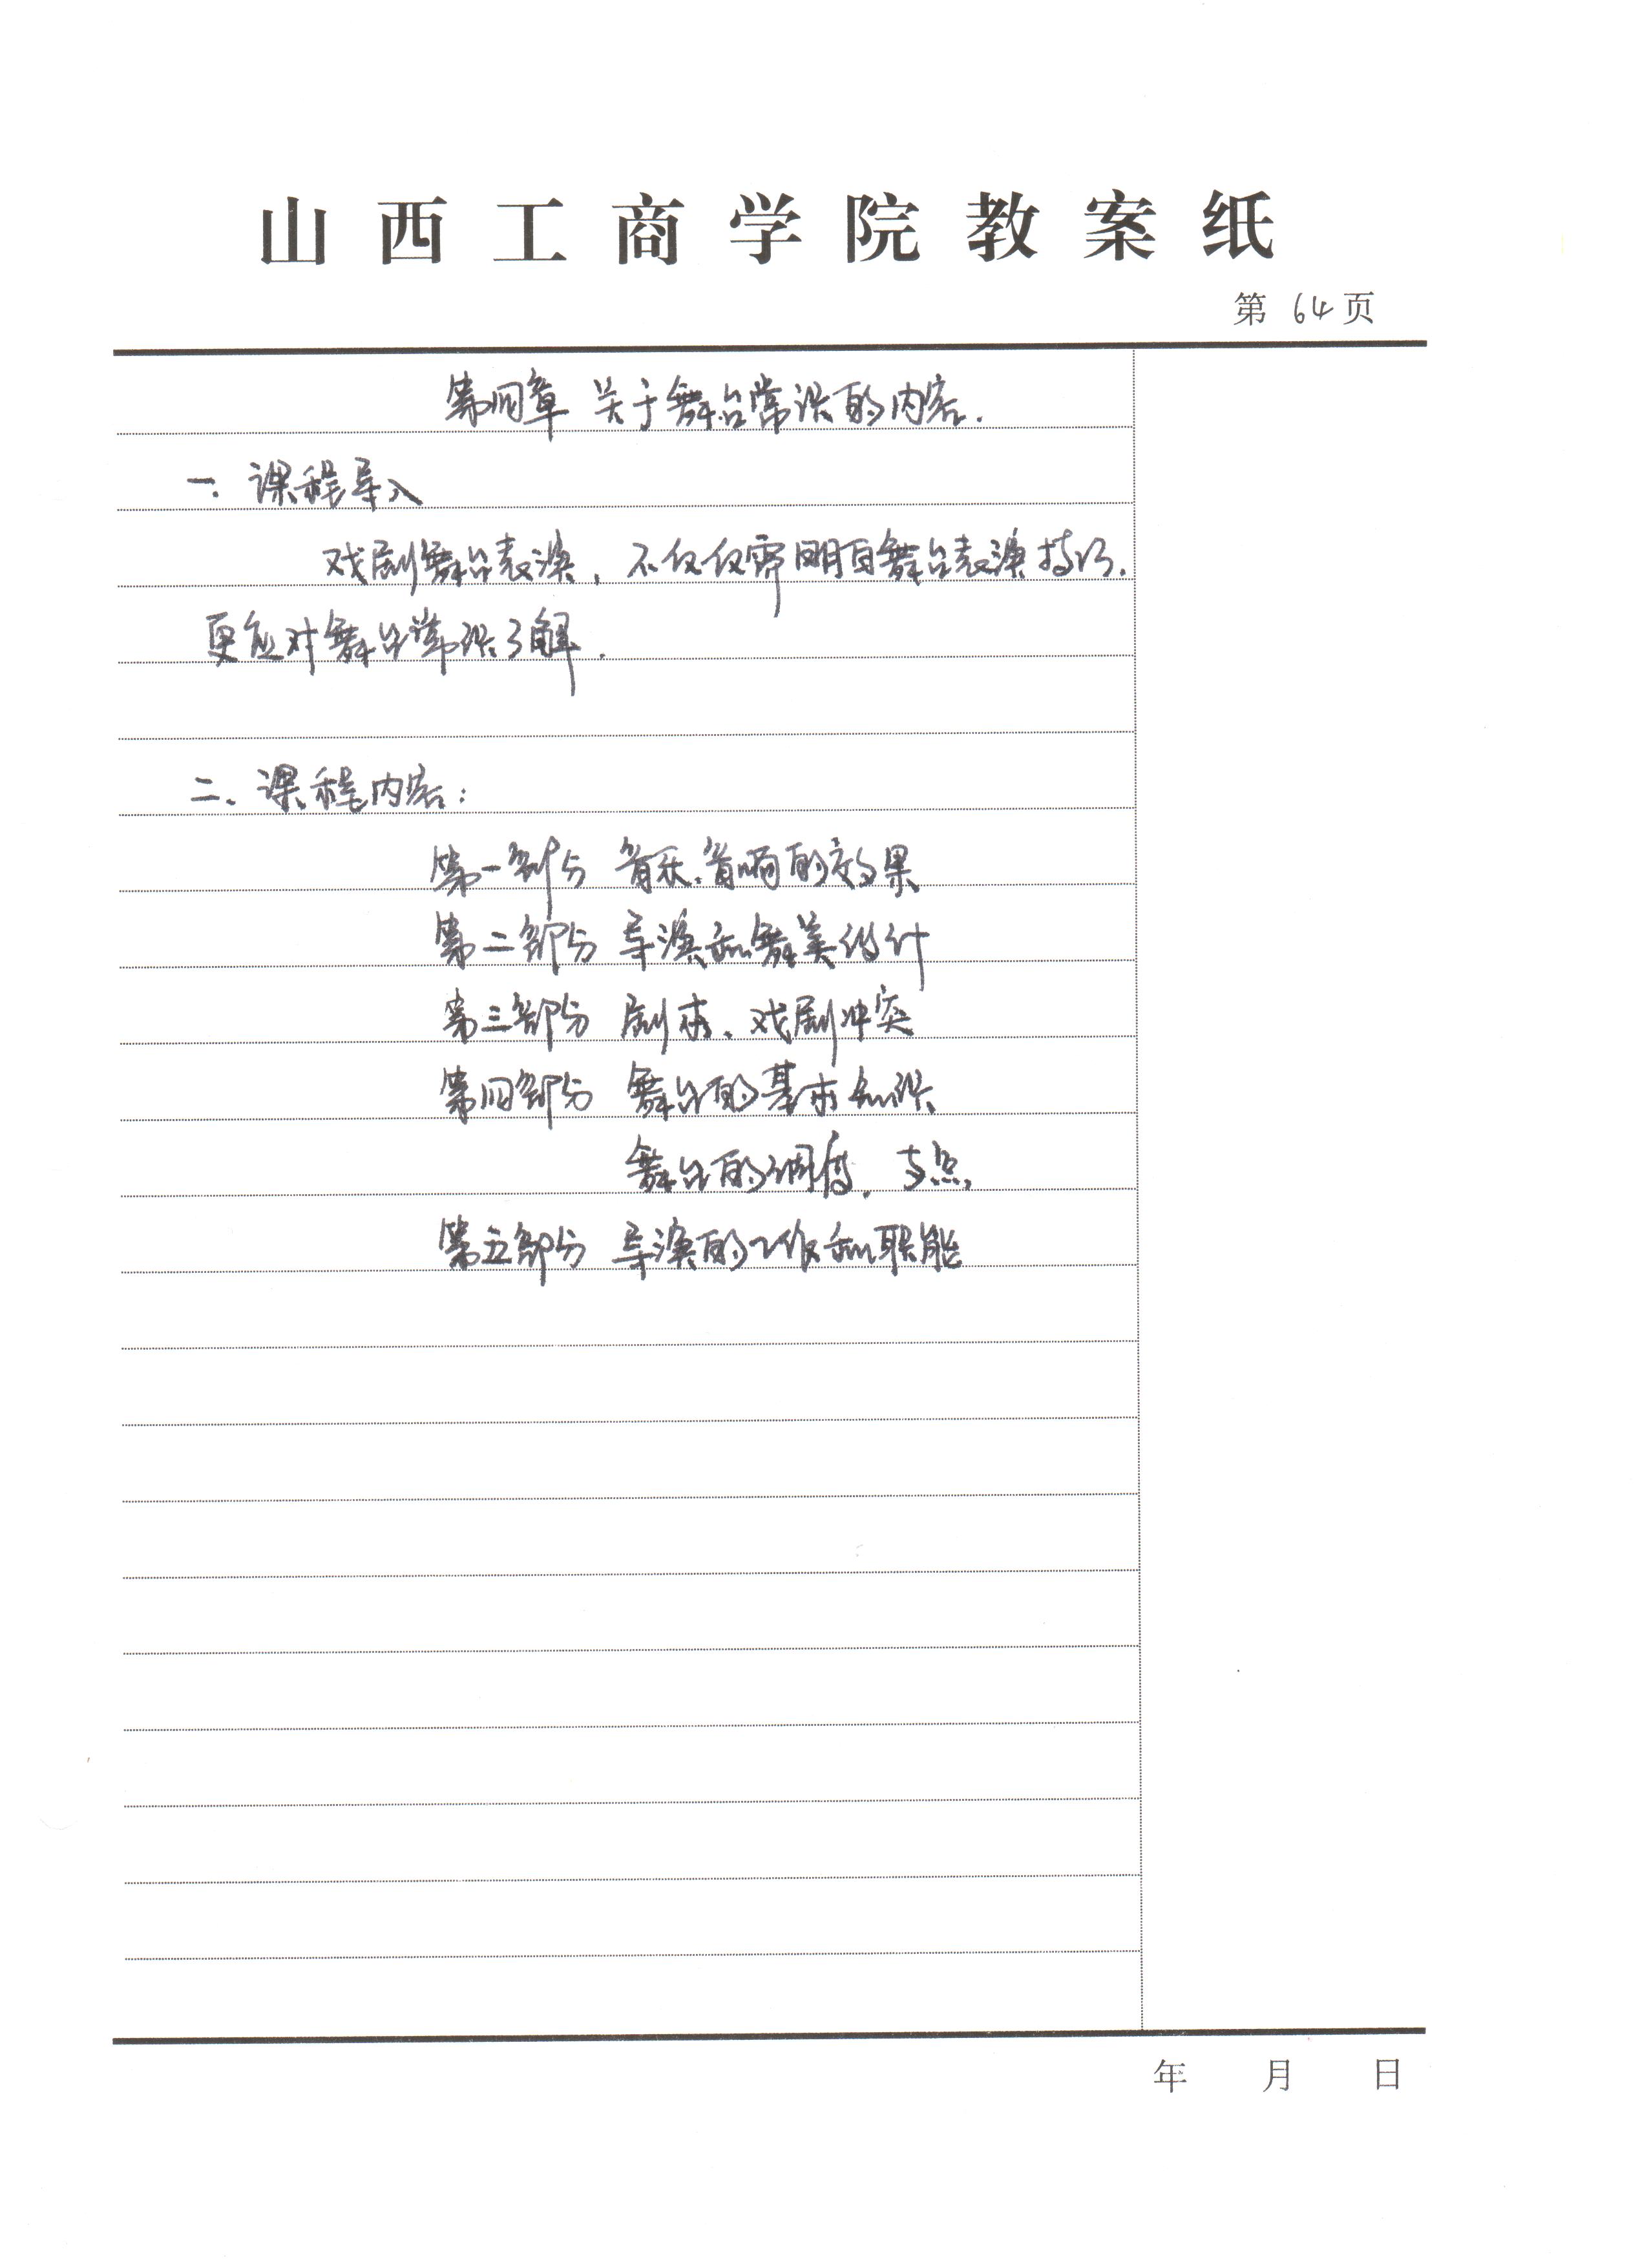 山西工商学院教案纸
第 64 页
第四章 关于舞台常识的内容.
一. 课程导入
戏剧舞台表演, 不仅仅需明白舞台表演技巧.
更应对舞台常识了解.
二、课程内容:
第一部分 音乐.音响的效果
第二部分 导演和舞美设计
第三部分 剧本、戏剧冲突
第四部分 舞台的基本知识
舞台的调度, 支点,
第五部分 导演的工作和职能
年 月 日